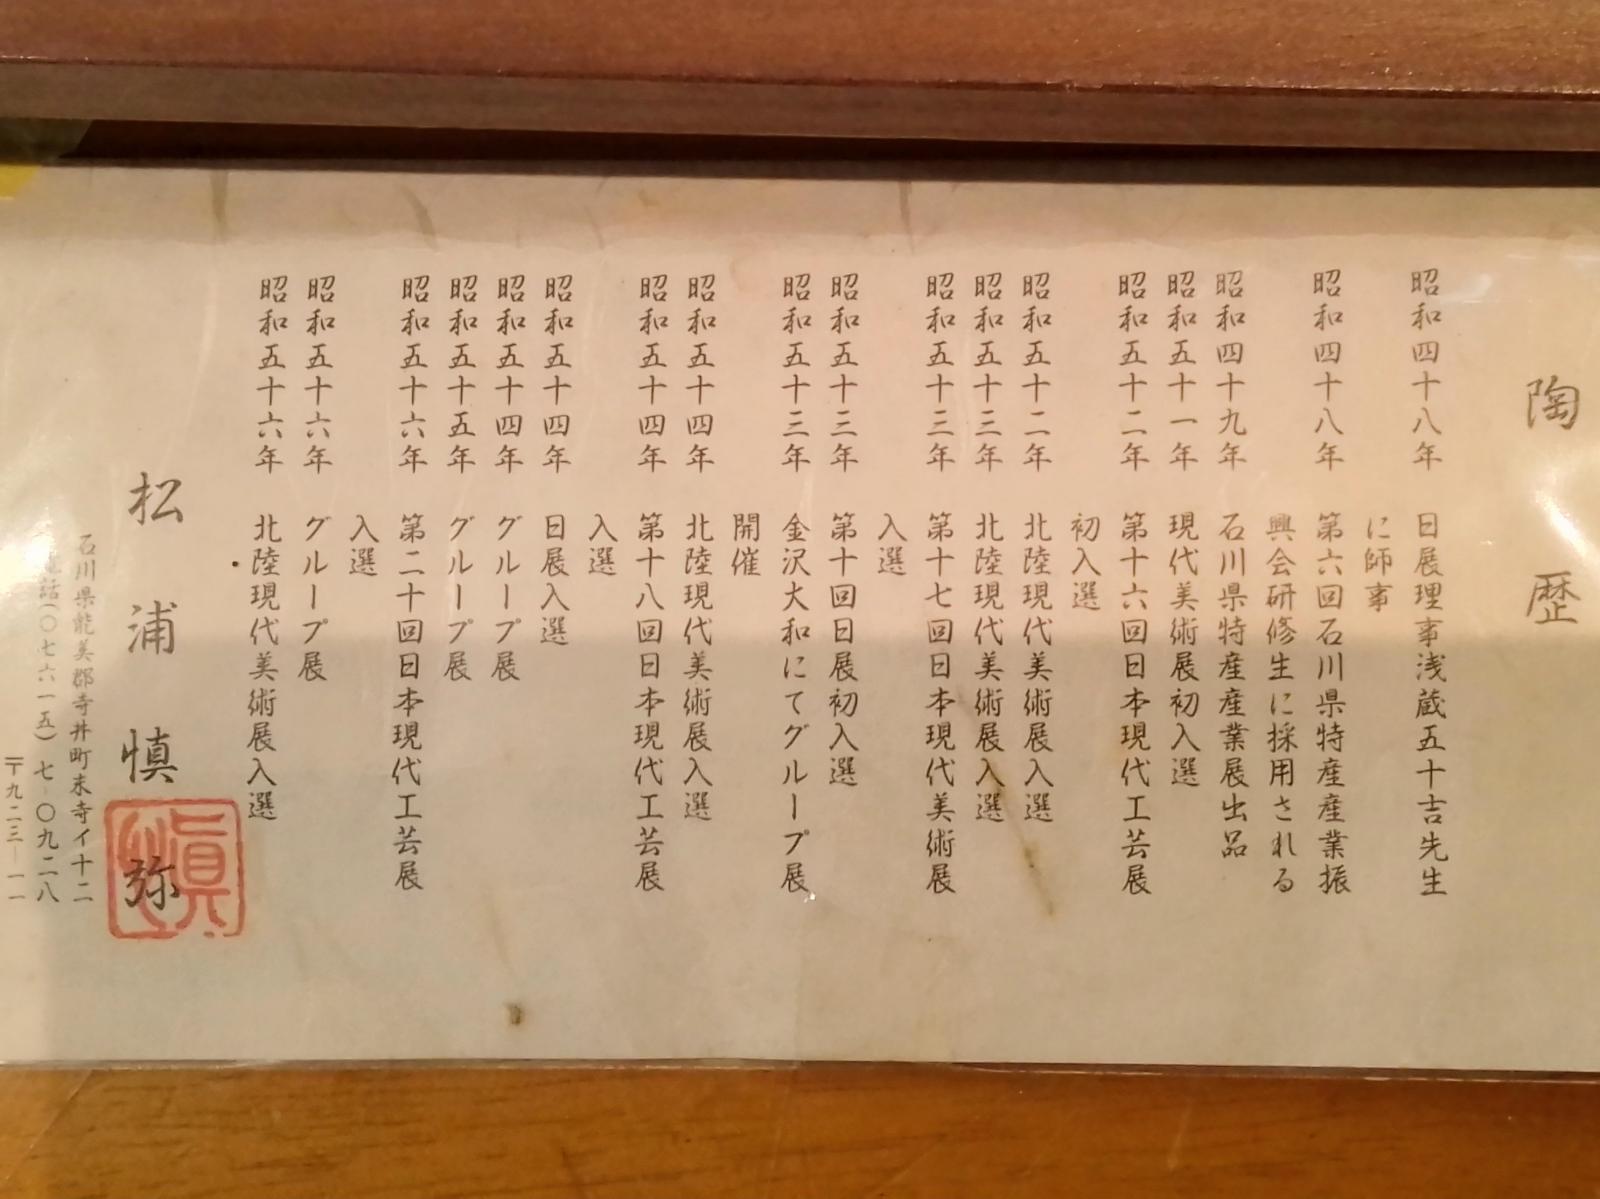 陶歴
昭和四十八年 日展理事浅蔵五十吉先生
に師事
昭和四十八年 第六回石川県特産産業振
興会研修生に採用される
昭和四十九年 石川県特産産業展出品
昭和五十一年 現代美術展初入選
昭和五十二年 第十六回日本現代工芸展
初入選
昭和五十二年 北陸現代美術展入選
昭和五十三年 北陸現代美術展入選
昭和五十三年 第十七回日本現代美術展
入選
昭和五十三年 第十回日展初入選
昭和五十三年 金沢大和にてグループ展
開催
昭和五十四年 北陸現代美術展入選
昭和五十四年 第十八回日本現代工芸展
入選
昭和五十四年 日展入選
昭和五十四年 グループ展
昭和五十五年 グループ展
昭和五十六年 第二十回日本現代工芸展
入選
昭和五十六年 グループ展
昭和五十六年 北陸現代美術展入選
松浦慎弥
石川県能美郡寺井町末寺イ十二
電話(〇七六一五)七-〇九二八
〒九二三-一一